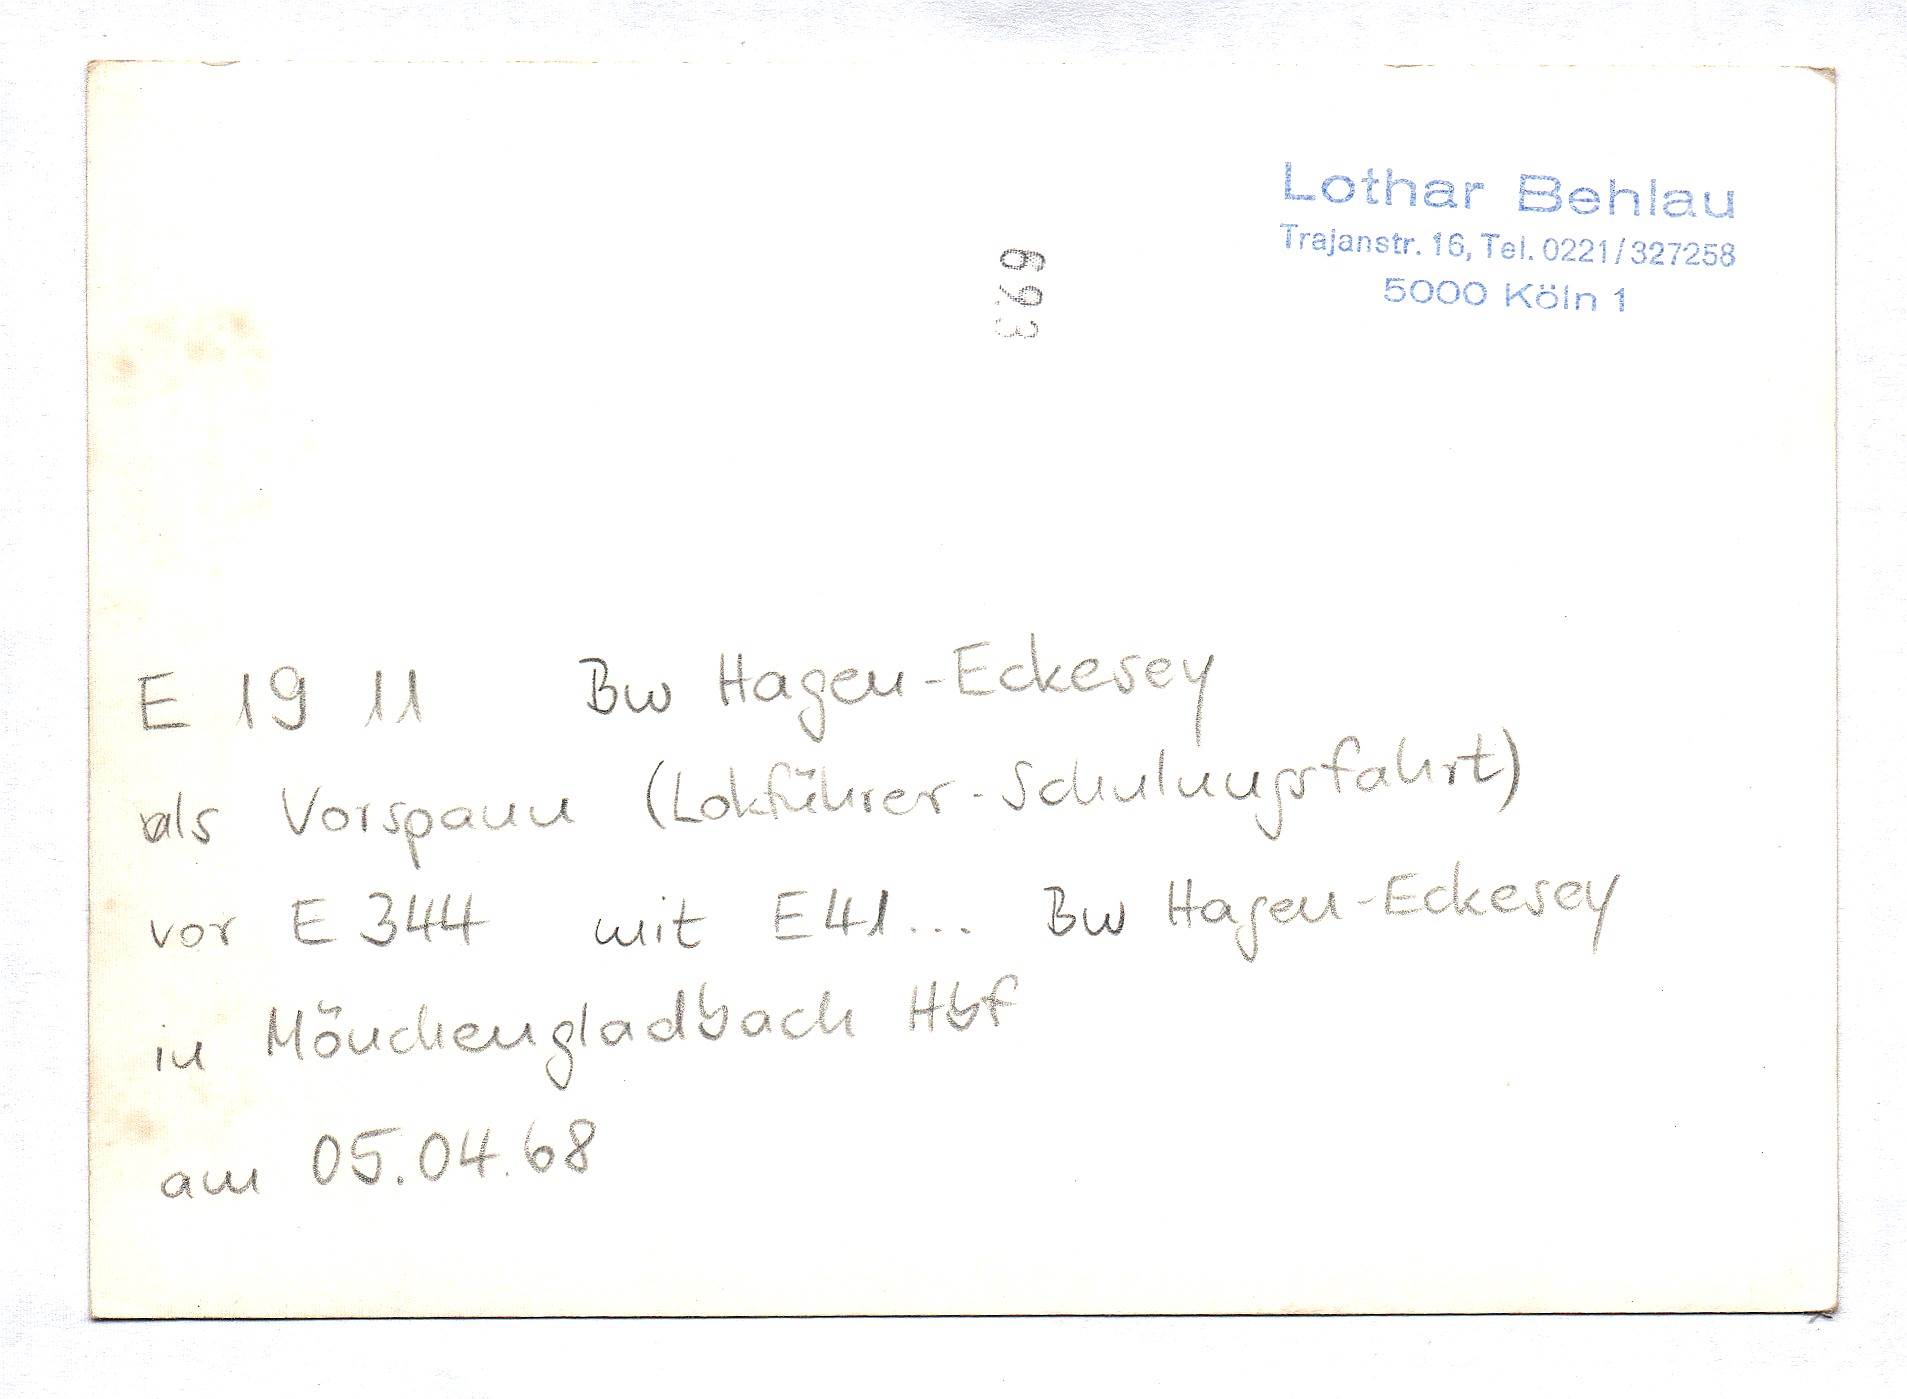 Lothar Behlau
Trajanstr. 16, Tel. 0221/327258
5000 Köln 1
693
E 19 11 Bw Hagen-Eckesey
als Vorspann (Lokführer-Schulungsfahrt)
vor E 344 mit E41... Bw Hagen-Eckesey
in Mönchengladbach Hbf
am 05.04.68